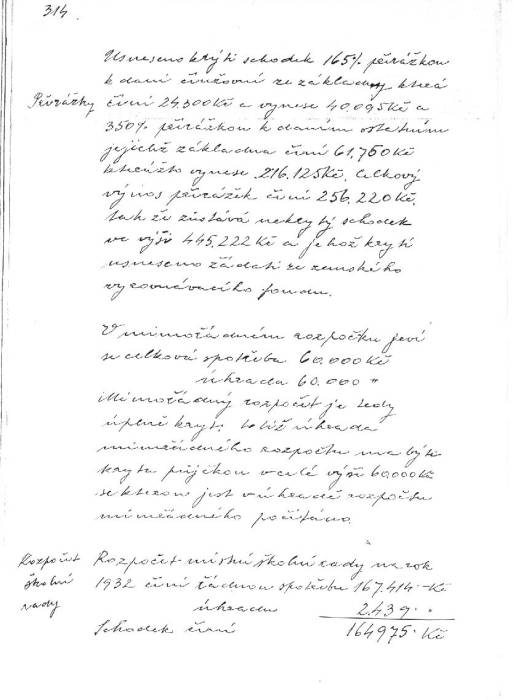 314
Usneseno krýti schodek 165% přirážkou
k dani činžovní ze základny která
Přirážky
činí 24.300 Kč a vynese 40.095 Kč a
350% přirážkou k daním ostatním
jejichž základna činí 61,750 Kč
kteréžto vynese 216.125 Kč. Celkový
výnos přirážek činí 256.220 Kč,
tak že zůstává nekrytý schodek
ve výši 445,222 Kč a jehož krytí
usneseno žádati ze zemského
vyrovnávacího fondu.
V mimořádném rozpočtu jeví
se celková spotřeba 60.000 Kč
úhrada 60.000 "
Mimořádný rozpočet je tedy
úplně kryt. úhrada
mimořádného rozpočtu má býti
kryta půjčkou v celé výši 60,000 Kč
se kterou jest v úhradě rozpočtu
mimořádného počítáno.
Rozpočet
školní
rady
Rozpočet místní školní rady na rok
1932 činí řádnou spotřebu 167.414·-Kč
úhradu 2.439 · "
Schodek činí 164975·Kč